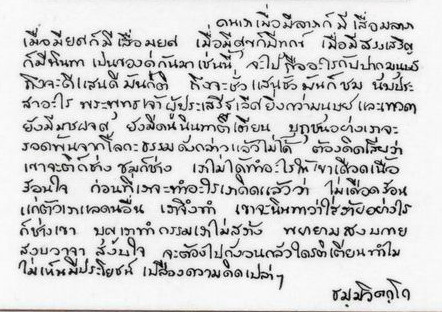 คนเราเมื่อมีลาภก็มีเสื่อมลาภ
เมื่อมียศก็มีเสื่อมยศ เมื่อมีสุขก็มีทุกข์ เมื่อมีสรรเสริญ
ก็มีนินทา เป็นของคู่กันมาเช่นนี้ จะไปถืออะไรกับปากมนุษย์
ถึงจะดีแสนดีมันก็ติ ถึงจะชั่วแสนชั่วมันก็ชม นับประ
สาอะไร พระพุทธเจ้าผู้ประเสริฐเลิศยิ่งกว่ามนุษย์และเทวดา
ยังมีมารผจญ ยังมีคนนินทาติเตียน ปุถุชนอย่างเราจะ
รอดพ้นจากโลกะธรรมดังกล่าวแล้วไม่ได้ ต้องคิดเสียว่า
เขาจะติก็ช่าง ชมก็ช่าง เราไม่ได้ทำอะไรให้เขาเดือดเนื้อ
ร้อนใจ ก่อนที่เราจะทำอะไรเราคิดแล้วว่า ไม่เดือดร้อน
แก่ตัวเราและคนอื่น เราจึงทำ เขาจะนินทาว่าใส่ร้ายอย่างไร
ก็ช่างเขา บุญเราทำกรรมเราไม่สร้าง พยายามสงบกาย
สงบวาจา สงบใจ จะต้องไปกังวลกลัวใครติเตียนทำไม
ไม่เห็นมีประโยชน์ เปลืองความคิดเปล่าๆ
ธมฺมวิตกฺโก